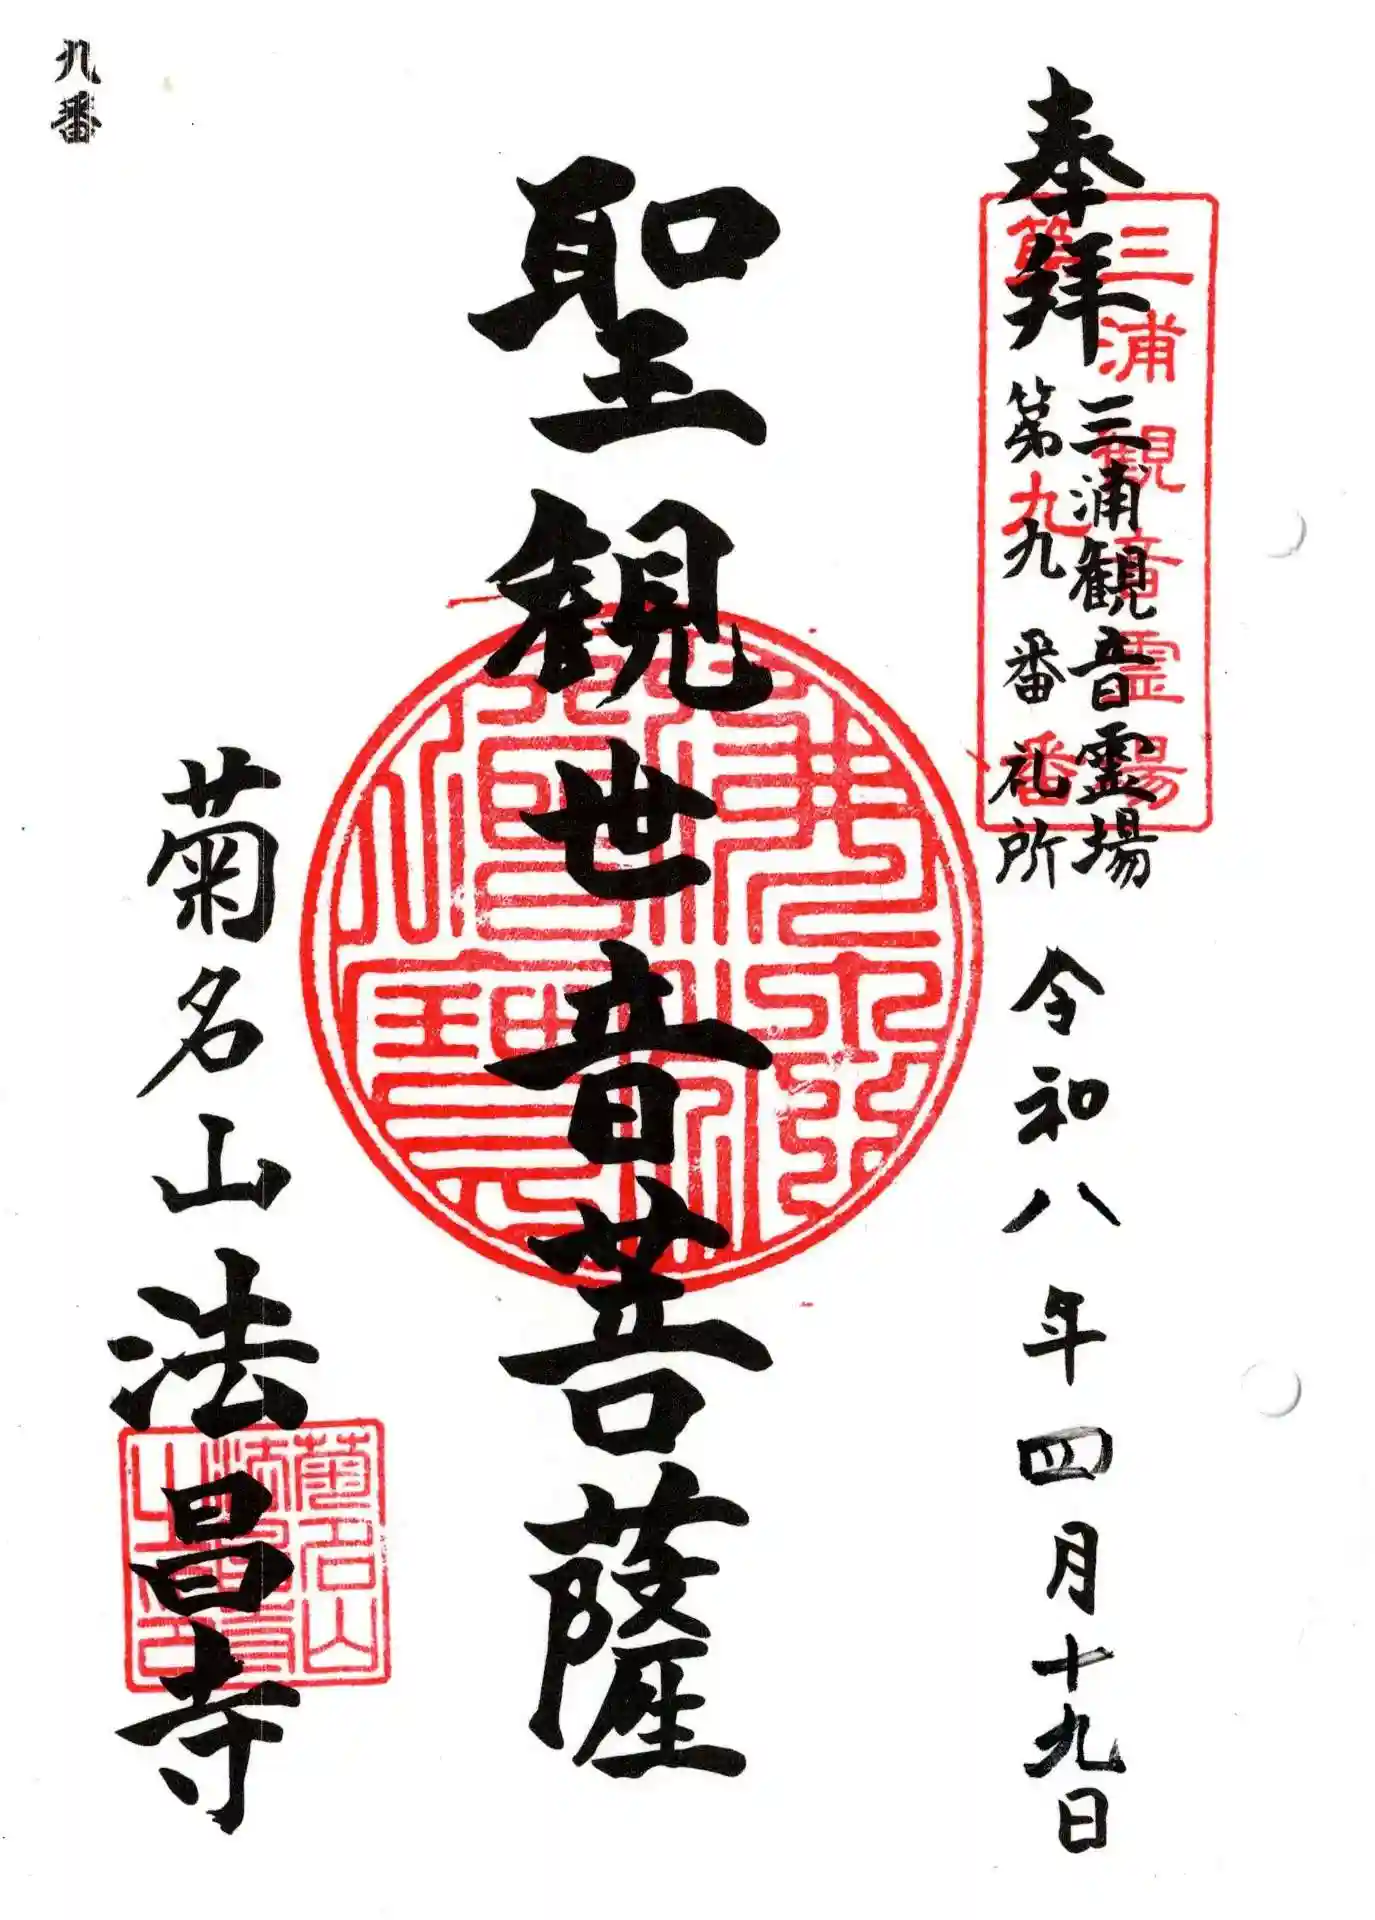 奉拝
三浦観音霊場
第九番札所
令和八年四月十九日
三浦観音霊場
第九番
聖観世音菩薩
菊名山法昌寺
菊名山
法昌寺
九番